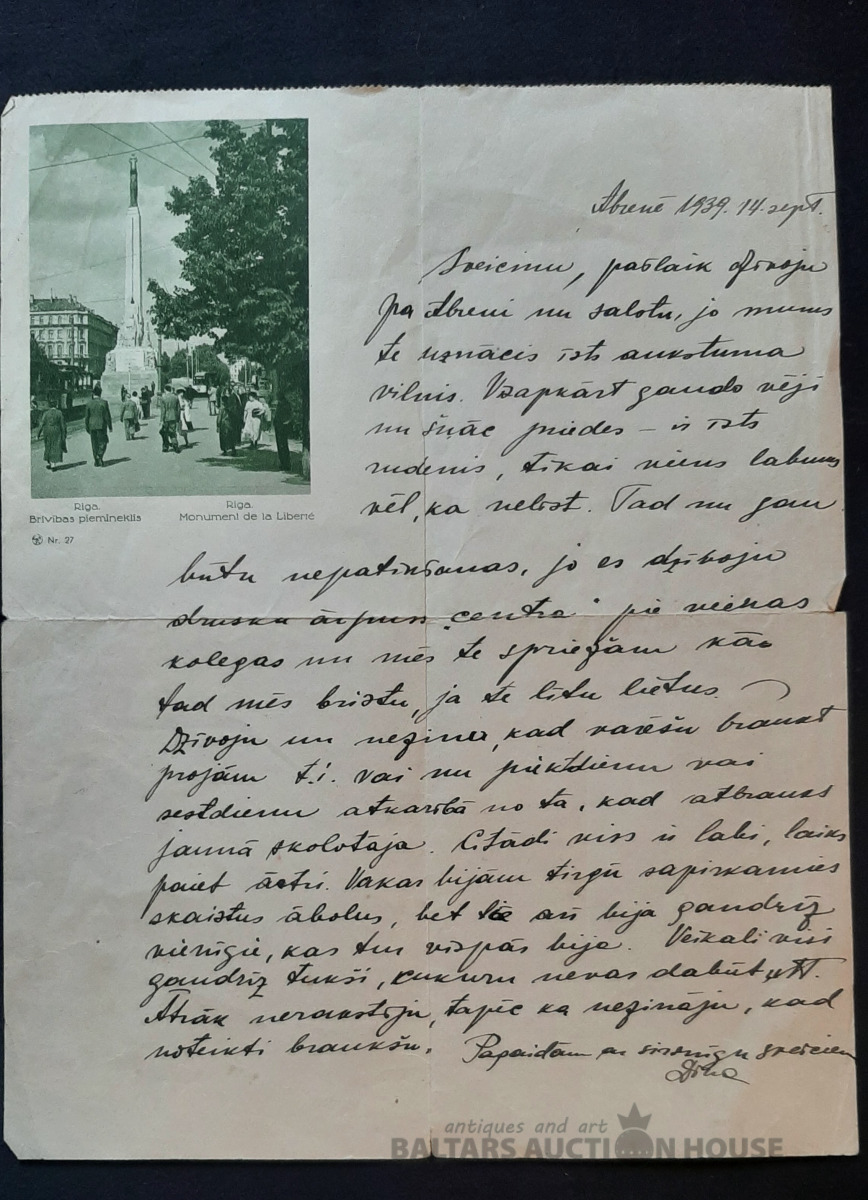 Abrenē 1939. 14. sept.
Sveicinu, pašlaik dzīvoju
pa Abreni un salstu, jo mums
te uznācis īsts aukstuma
vilnis. Visapkārt gaudo vēji
un šņāc priedes – ir īsts
rudenis, tikai viens labums
vēl, ka nelīst. Tad nu gan
Rīga. Rīga.
Brīvības piemineklis Monument de la Liberté
Nr. 27
būtu nepatikšanas, jo es dzīvoju
drusku ārpuss "centra" pie vienas
kolēgas un mēs te spriežam kā
tad mēs bristu, ja te lītu lietus.
Dzīvoju un nezinu, kad varēšu braukt
projām t.i. vai nu piektdienu vai
sestdienu atkarībā no tā, kad atbrauks
jaunā skolotāja. Citādi viss ir labi, laiks
paiet ātri. Vakar bijām tirgū sapirkāmies
skaistus ābolus, bet tie arī bija gandrīz
vienīgie, kas tur vispār bija. Veikali visi
gandrīz tukši, cukuru nevar dabūt
Ātrāk nerakstīju, tāpēc ka nezināju, kad
noteikti braukšu. Pagaidām ar sirsnīgu sveicienu
antiques and art
BALTARS AUCTION HOUSE